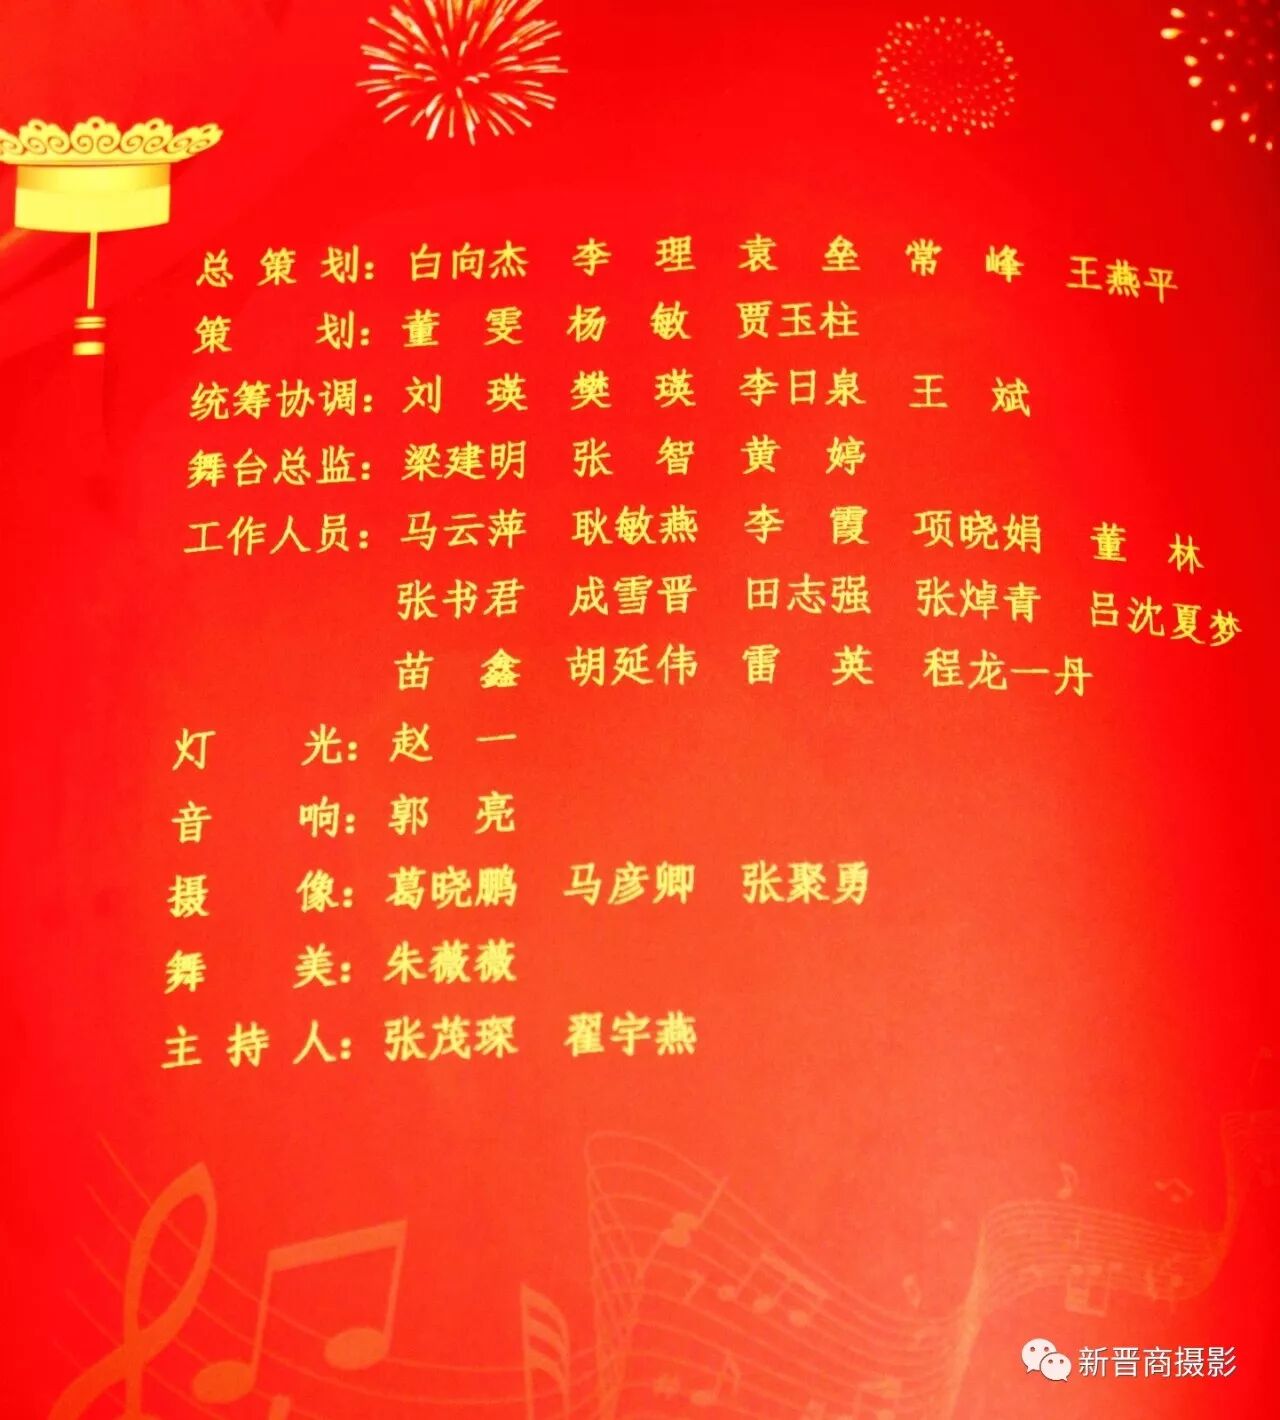 总策划：白向杰 李理 袁垒 常峰 王燕平
策划：董雯 杨敏 贾玉柱
统筹协调：刘瑛 樊瑛 李日泉 王斌
舞台总监：梁建明 张智 黄婷
工作人员：马云萍 耿敏燕 李霞 项晓娟 董林
张书君 成雪晋 田志强 张焯青 吕沈夏梦
苗鑫 胡延伟 雷英 程龙一丹
灯光：赵一
音响：郭亮
摄像：葛晓鹏 马彦卿 张聚勇
舞美：朱薇薇
主持人：张茂琛 翟宇燕
新晋商摄影